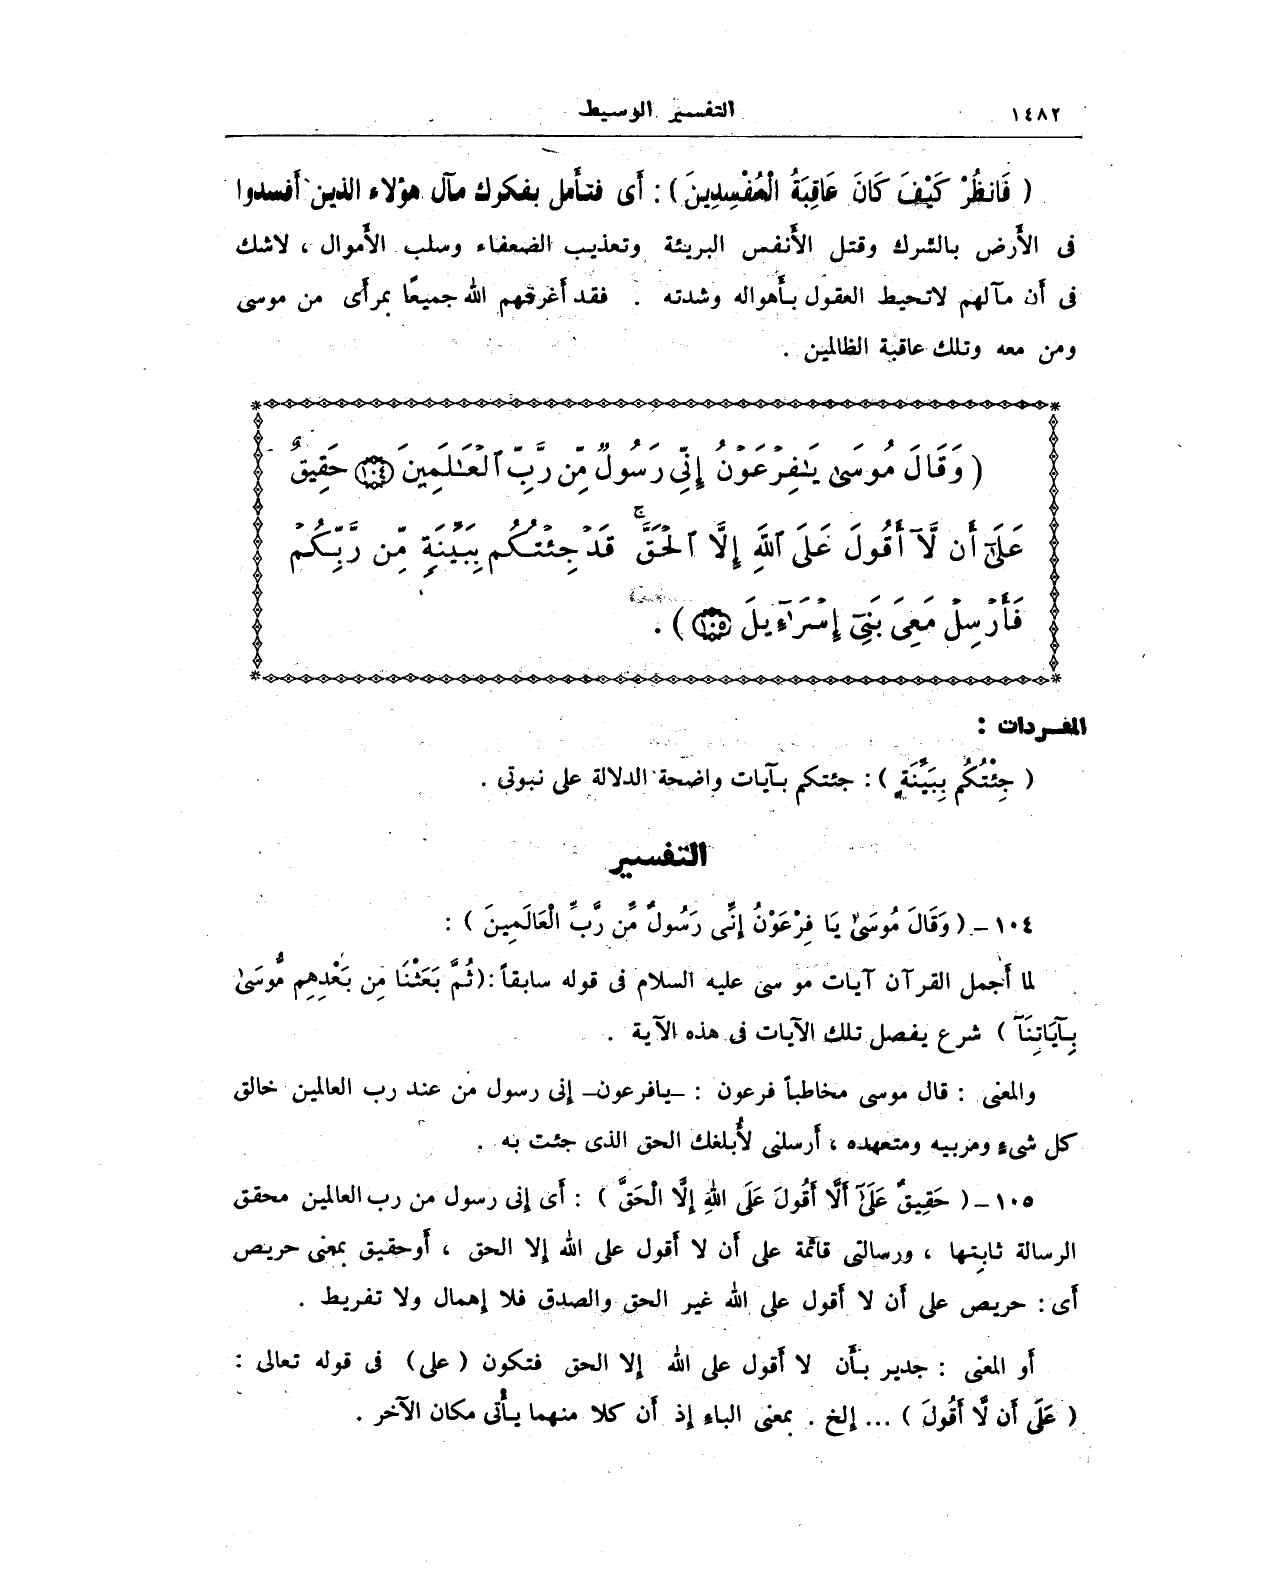 ١٤٨٢ التفسير الوسيط
( فَانظُرْ كَيْفَ كَانَ عَاقِبَةُ الْمُفْسِدِينَ ) : أى فتأمل بفكرك مآل هؤلاء الذين أفسدوا
فى الأرض بالشرك وقتل الأنفس البريئة وتعذيب الضعفاء وسلب الأموال ، لاشك
فى أن مآلهم لاتحيط العقول بأهواله وشدته . فقد أغرقهم الله جميعًا بمرأى من موسى
ومن معه وتلك عاقبة الظالمين .
( وَقَالَ مُوسَىٰ يَـٰفِرْعَوْنُ إِنِّى رَسُولٌ مِّن رَّبِّ ٱلْعَـٰلَمِينَ ١٠٤ حَقِيقٌ
عَلَىٰٓ أَن لَّآ أَقُولَ عَلَى ٱللَّهِ إِلَّا ٱلْحَقَّ ۚ قَدْ جِئْتُكُم بِبَيِّنَةٍ مِّن رَّبِّكُمْ
فَأَرْسِلْ مَعِىَ بَنِىٓ إِسْرَٰٓءِيلَ ١٠٥ ) .
المفـردات :
( جِئْتُكُم بِبَيِّنَةٍ ) : جئتكم بآيات واضحة الدلالة على نبوتى .
التفسير
١٠٤ - ( وَقَالَ مُوسَىٰ يَا فِرْعَوْنُ إِنِّى رَسُولٌ مِّن رَّبِّ الْعَالَمِينَ ) :
لما أجمل القرآن آيات موسى عليه السلام فى قوله سابقاً : ( ثُمَّ بَعَثْنَا مِن بَعْدِهِم مُّوسَىٰ
بِآيَاتِنَآ ) شرع يفصل تلك الآيات فى هذه الآية .
والمعنى : قال موسى مخاطباً فرعون : -يافرعون- إنى رسول من عند رب العالمين خالق
كل شىء ومربيه ومتعهده ، أرسلنى لأُبلغك الحق الذى جئت به .
١٠٥ - ( حَقِيقٌ عَلَىٰٓ أَلَّا أَقُولَ عَلَى اللهِ إِلَّا الْحَقَّ ) : أى إنى رسول من رب العالمين محقق
الرسالة ثابتها ، ورسالتى قائمة على أن لا أقول على الله إلا الحق ، أوحقيق بمعنى حريص
أى : حريص على أن لا أقول على الله غير الحق والصدق فلا إهمال ولا تفريط .
أو المعنى : جدير بأن لا أقول على الله إلا الحق فتكون ( على ) فى قوله تعالى :
( عَلَىٰ أَن لَّا أَقُولَ ) ... إلخ . بمعنى الباء إذ أن كلا منهما يأتى مكان الآخر .